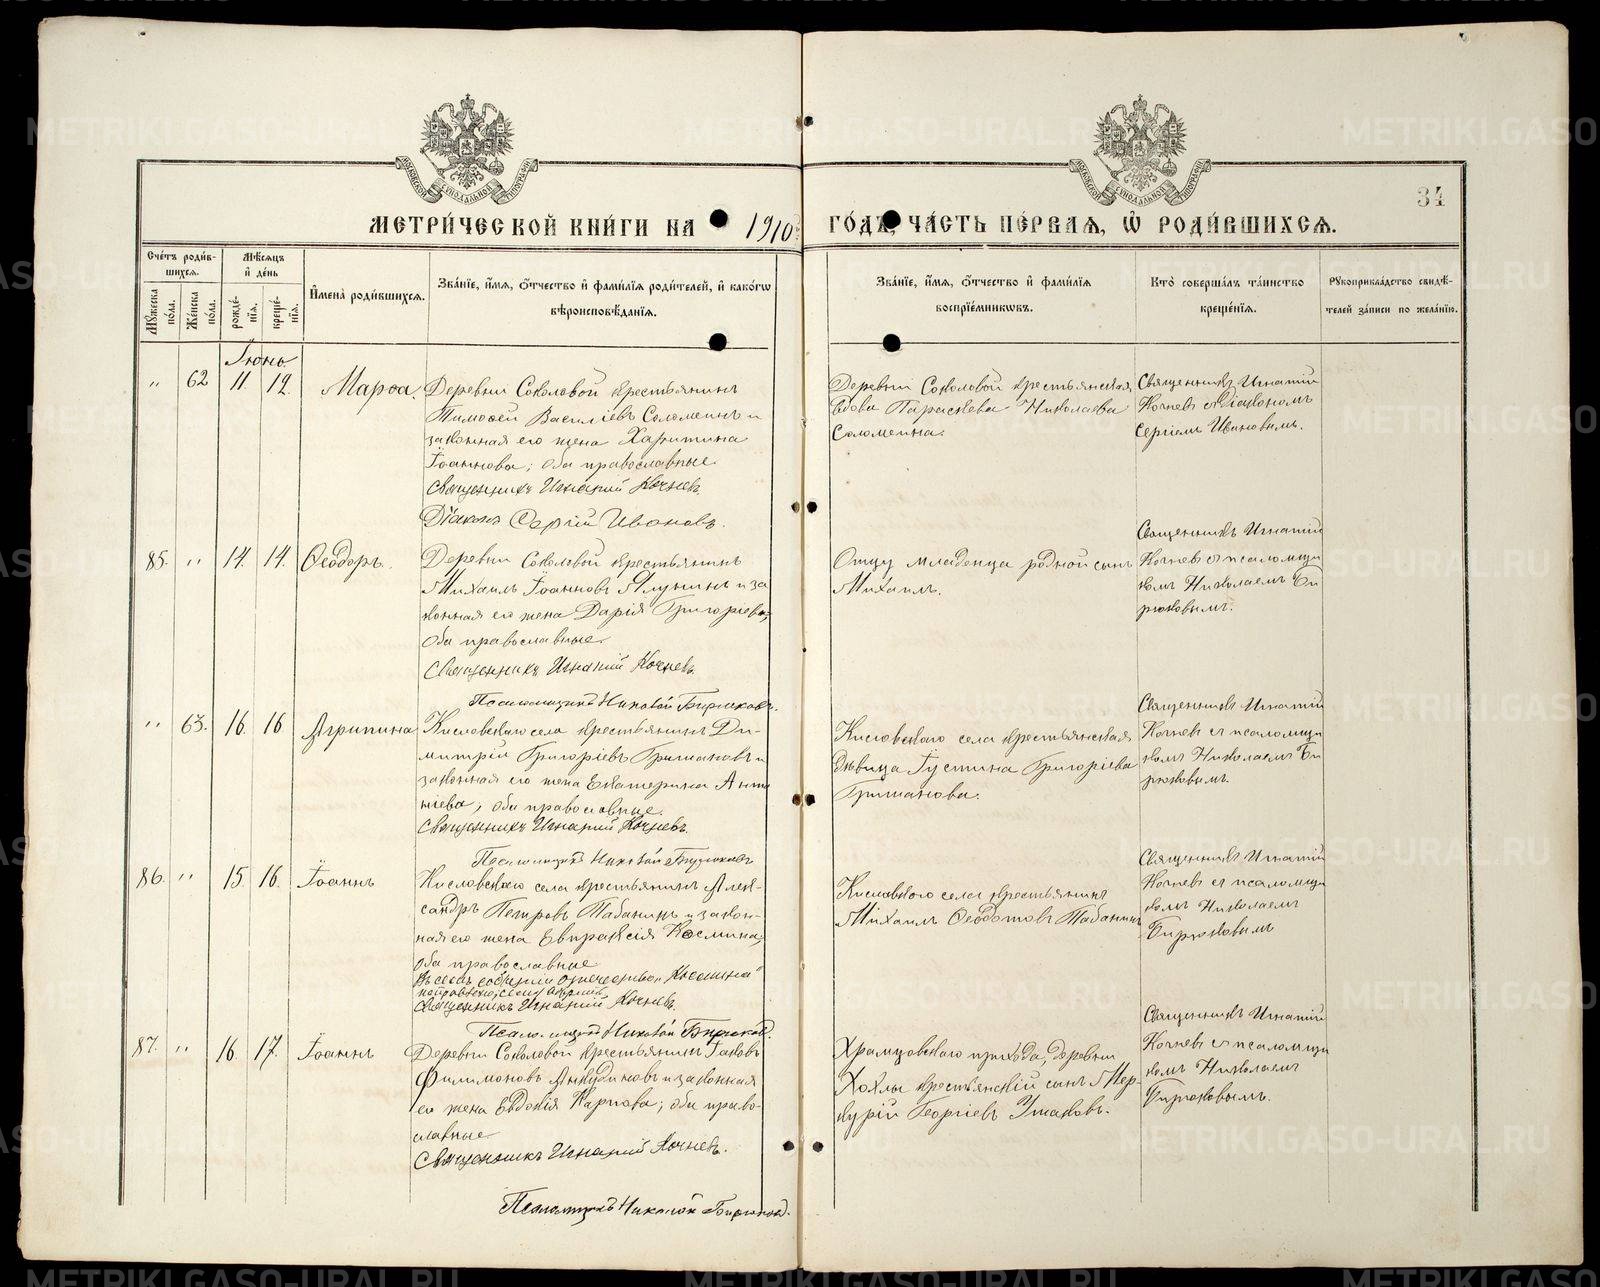 34
МЕТРИ́ЧЕСКОЙ КНИ́ГИ НА 1910
ГО́ДЪ, ЧА́СТЬ ПЕ́РВАЯ, Ѡ РОДИ́ВШИХСЯ.
Сче́тъ роди́в-
шихся.
Му́жеска по́ла.
Же́нска по́ла.
Мѣ́сяцъ
и де́нь
рожде́-
нїя.
креще́-
нїя.
И́мена роди́вшихся.
Зва́нїе, и́мя, ѻ́тчество и фами́лїя роди́телей, и како́гѡ
вѣроисповѣ́данїя.
Зва́нїе, и́мя, ѻ́тчество и фами́лїя
воспрїе́мникѡвъ.
Кто̀ соверша́лъ та́инство
креще́нїя.
Рꙋкоприкла́дство свидѣ́-
телей за́писи по жела́нїю.
Іюнь.
" 62 11 12. Марѳа.
Деревни Соколовой крестьянинъ
Тимоѳей Васильевъ Соломеинъ и
законная его жена Харитина
Іоаннова; оба православные
Священникъ Игнатій Кочневъ.
Діаконъ Сергій Ивановъ.
Деревни Соколовой крестьянская
вдова Параскева Николаева
Соломеина.
Священникъ Игнатій
Кочневъ съ діакономъ
Сергіемъ Ивановымъ.
85. " 14. 14. Ѳеодоръ.
Деревни Соколовой крестьянинъ
Михаилъ Іоанновъ Ялунинъ и за
конная его жена Дарія Григорьева;
оба православные
Священникъ Игнатій Кочневъ.
Псаломщикъ Николай Бирюковъ.
Отцу младенца родной сынъ
Михаилъ.
Священникъ Игнатій
Кочневъ съ псаломщи
комъ Николаемъ Би
рюковымъ.
" 63. 16. 16 Агрипина
Кисловскаго села крестьянинъ Ди-
митрій Григорьевъ Гришановъ и
законная его жена Екатерина Анто
ньева; оба православные.
Священникъ Игнатій Кочневъ.
Псаломщикъ Николай Бирюковъ
Кисловскаго села крестьянская
дѣвица Іустина Григоріева
Гришанова.
Священникъ Игнатій
Кочневъ съ псаломщи
комъ Николаемъ Би
рюковымъ.
86. " 15. 16. Іоаннъ
Кисловскаго села крестьянинъ Алек-
сандръ Петровъ Табанинъ и закон-
ная его жена Евпраксія Космина;
оба православные
Въ семъ событіи отчество "Космина"
поправлено; сему вѣрить
Священникъ Игнатій Кочневъ.
Псаломщикъ Николай Бирюковъ.
Кисловскаго села крестьянинъ
Михаилъ Ѳеодотовъ Табанинъ
Священникъ Игнатій
Кочневъ съ псаломщи
комъ Николаемъ
Бирюковымъ
87. " 16. 17. Іоаннъ
Деревни Соколовой крестьянинъ Іаковъ
Филимоновъ Анкудиновъ и законная
его жена Евдокія Карпова; оба право-
славные
Священникъ Игнатій Кочневъ.
Псаломщикъ Николай Бирюковъ.
Храмцовскаго прихода, деревни
Хохлы крестьянскій сынъ Мер-
курій Георгіевъ Ушаковъ.
Священникъ Игнатій
Кочневъ съ псаломщи
комъ Николаемъ
Бирюковымъ.